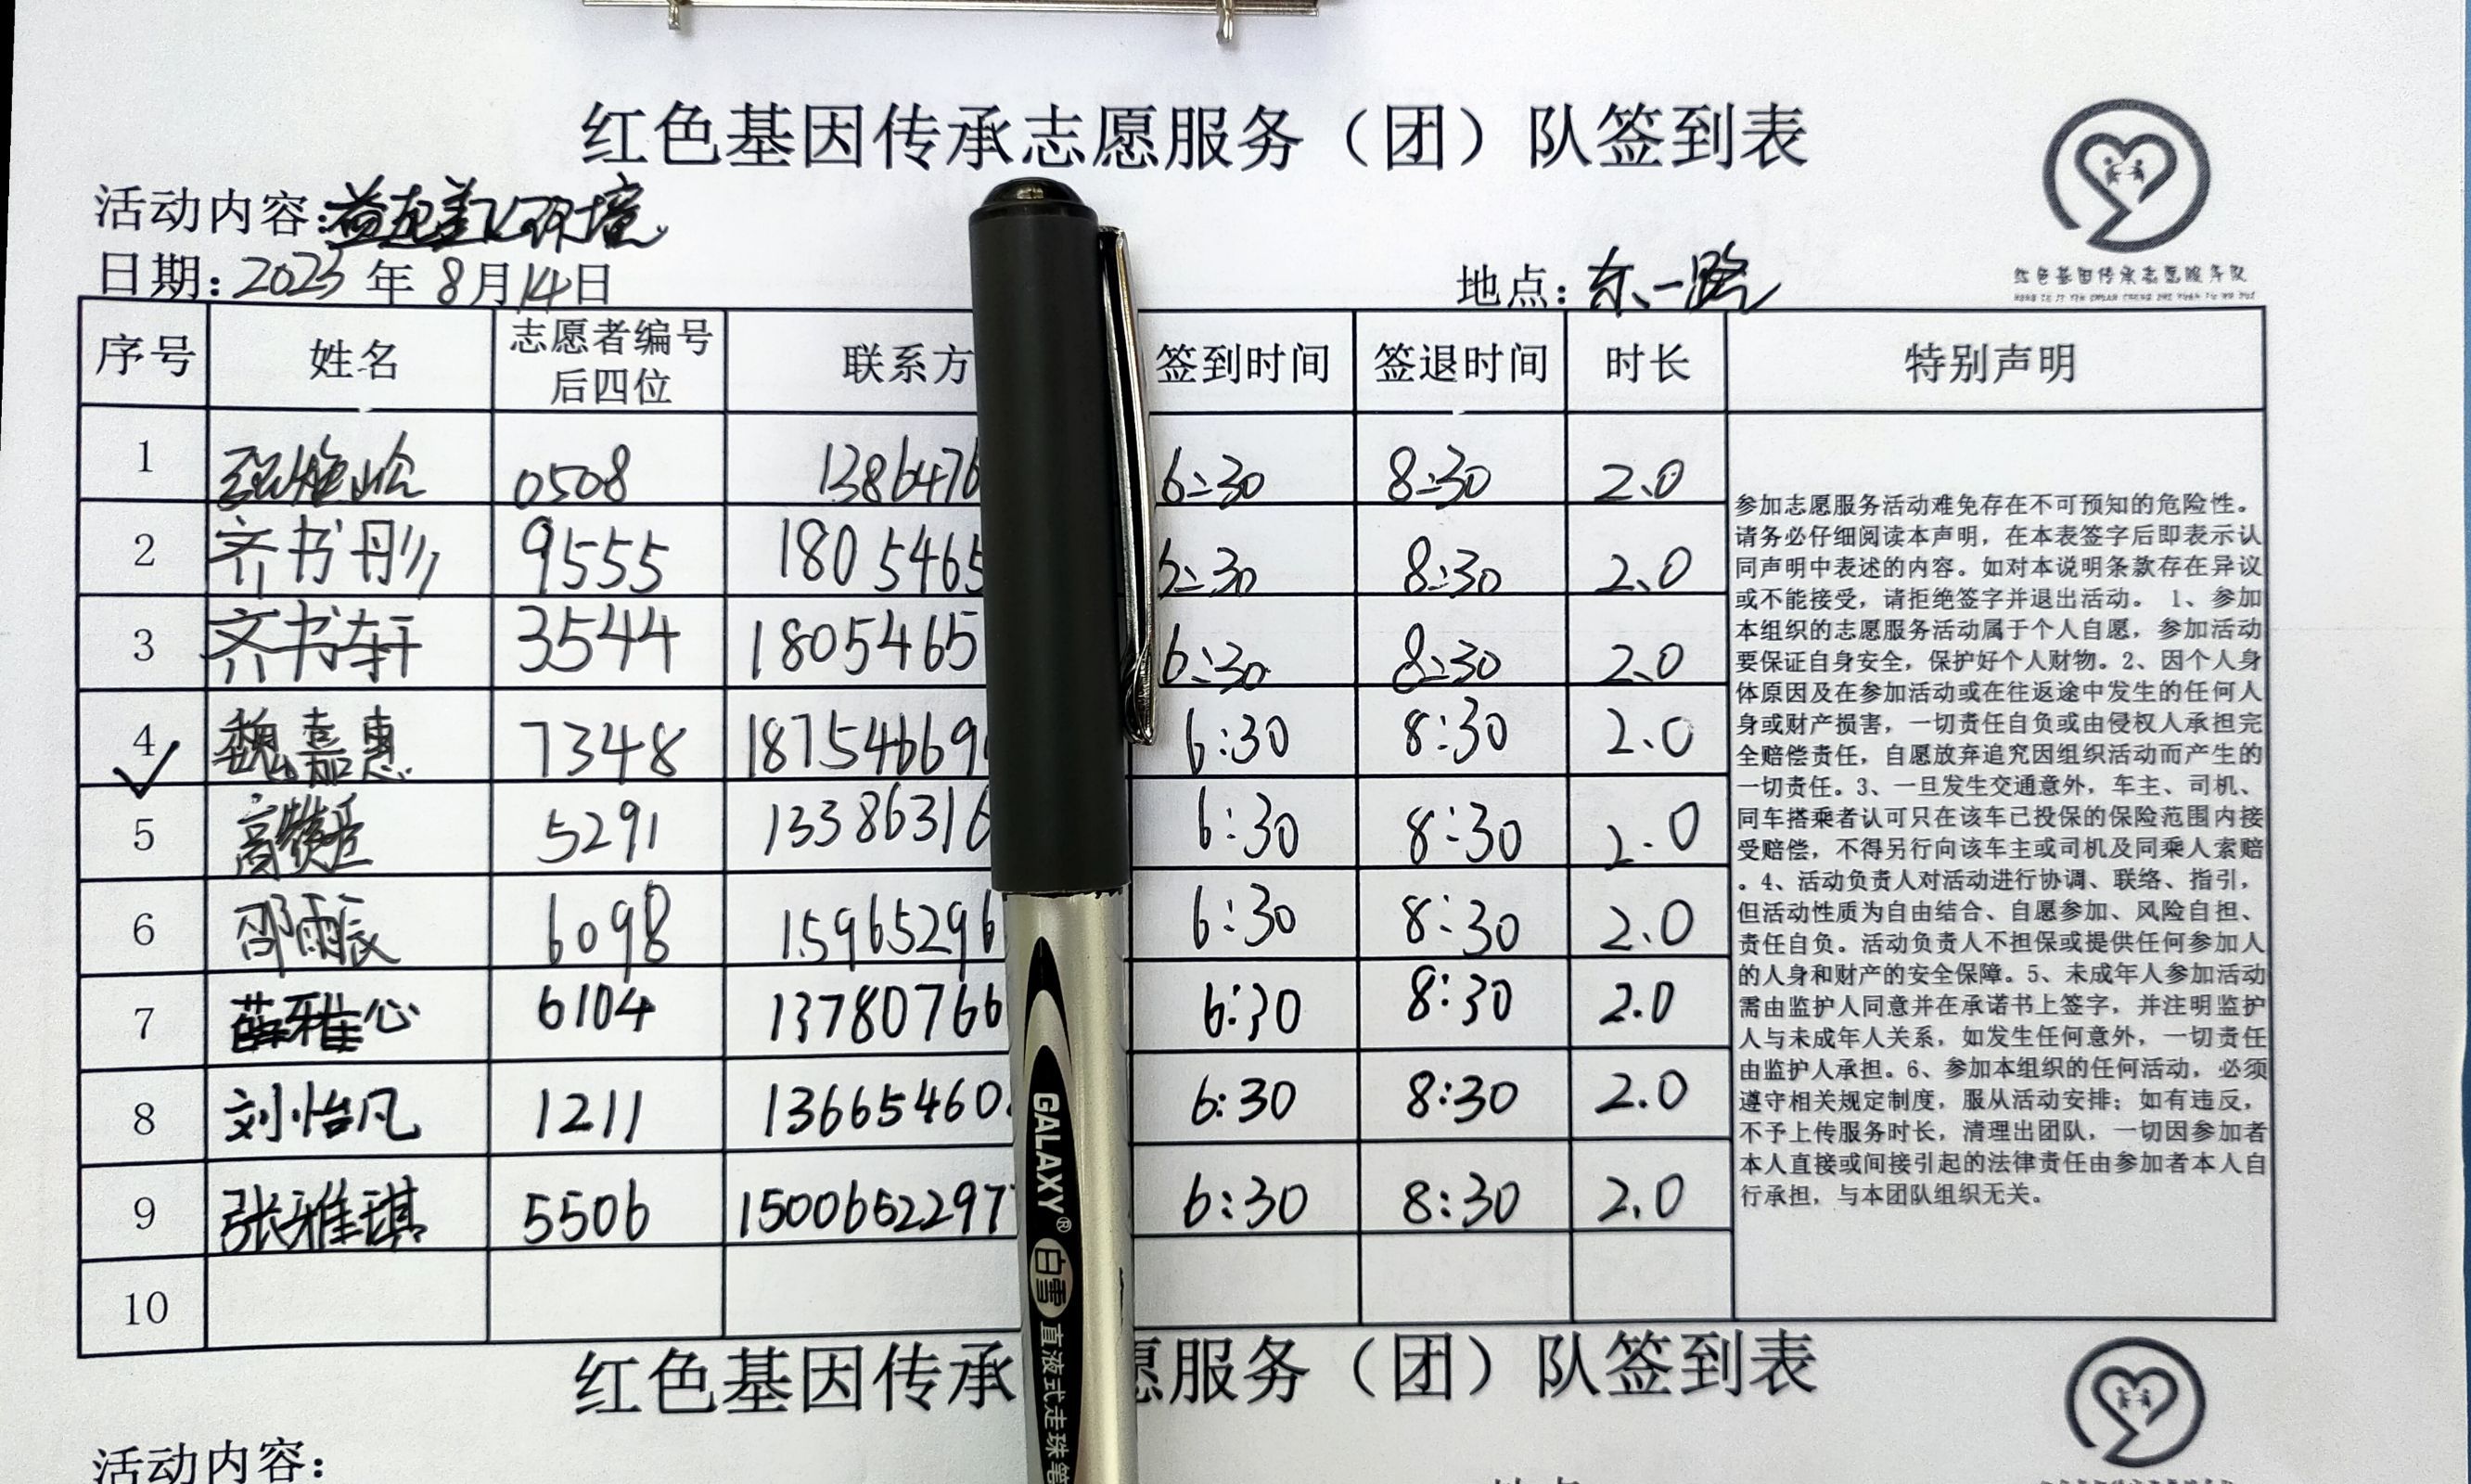 红色基因传承志愿服务（团）队签到表
活动内容：益起美化环境
日期：2023年8月14日 地点：东一路
红色基因传承志愿服务队
序号 姓名 志愿者编号后四位 联系方 签到时间 签退时间 时长 特别声明
1 0508 1386476 6:30 8:30 2.0
2 齐书彤 9555 1805465 6:30 8:30 2.0
3 齐书轩 3544 1805465 6:30 8:30 2.0
4 魏嘉惠 7348 18754669 6:30 8:30 2.0
5 高 5291 13386316 6:30 8:30 2.0
6 邵雨辰 6098 15965296 6:30 8:30 2.0
7 薛雅心 6104 13780766 6:30 8:30 2.0
8 刘怡凡 1211 13665460 6:30 8:30 2.0
9 张雅琪 5506 15006522977 6:30 8:30 2.0
10
参加志愿服务活动难免存在不可预知的危险性。
请务必仔细阅读本声明，在本表签字后即表示认
同声明中表述的内容。如对本说明条款存在异议
或不能接受，请拒绝签字并退出活动。 1、参加
本组织的志愿服务活动属于个人自愿，参加活动
要保证自身安全，保护好个人财物。2、因个人身
体原因及在参加活动或在往返途中发生的任何人
身或财产损害，一切责任自负或由侵权人承担完
全赔偿责任，自愿放弃追究因组织活动而产生的
一切责任。3、一旦发生交通意外，车主、司机、
同车搭乘者认可只在该车已投保的保险范围内接
受赔偿，不得另行向该车主或司机及同乘人索赔
。4、活动负责人对活动进行协调、联络、指引，
但活动性质为自由结合、自愿参加、风险自担、
责任自负。活动负责人不担保或提供任何参加人
的人身和财产的安全保障。5、未成年人参加活动
需由监护人同意并在承诺书上签字，并注明监护
人与未成年人关系，如发生任何意外，一切责任
由监护人承担。6、参加本组织的任何活动，必须
遵守相关规定制度，服从活动安排；如有违反，
不予上传服务时长，清理出团队，一切因参加者
本人直接或间接引起的法律责任由参加者本人自
行承担，与本团队组织无关。
GALAXY® 白雪 直液式走珠笔
红色基因传承 愿服务（团）队签到表
活动内容：